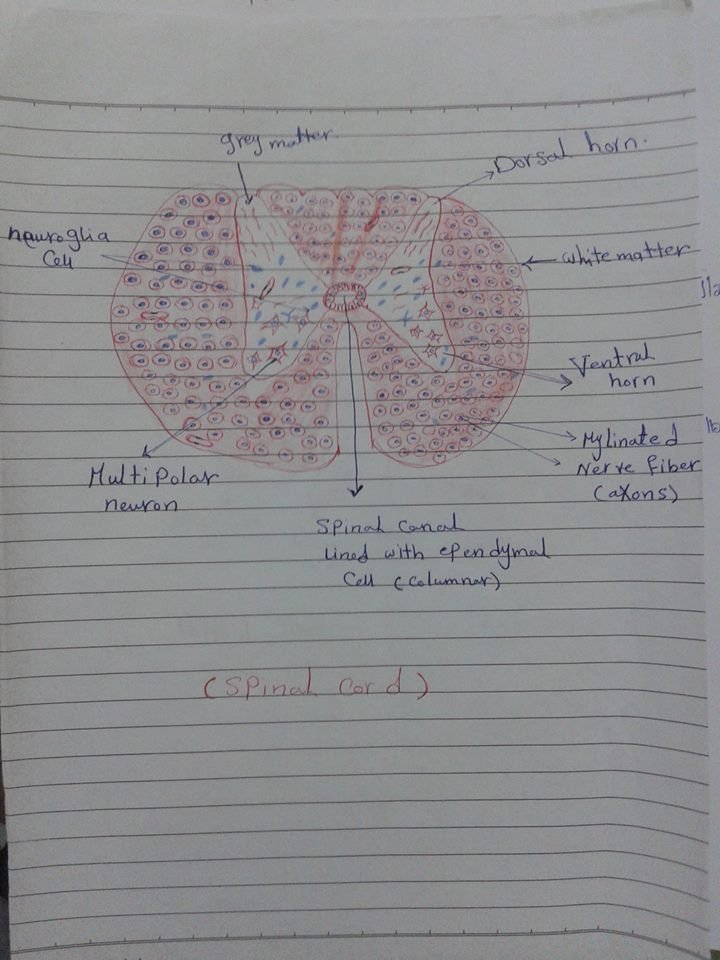 grey matter
Dorsal horn.
neuroglia
Cell
white matter
Ventral
horn
Mylinated
Nerve fiber
(axons)
Multipolar
neuron
Spinal canal
Lined with ependymal
Cell (columnar)
(Spinal Cord)